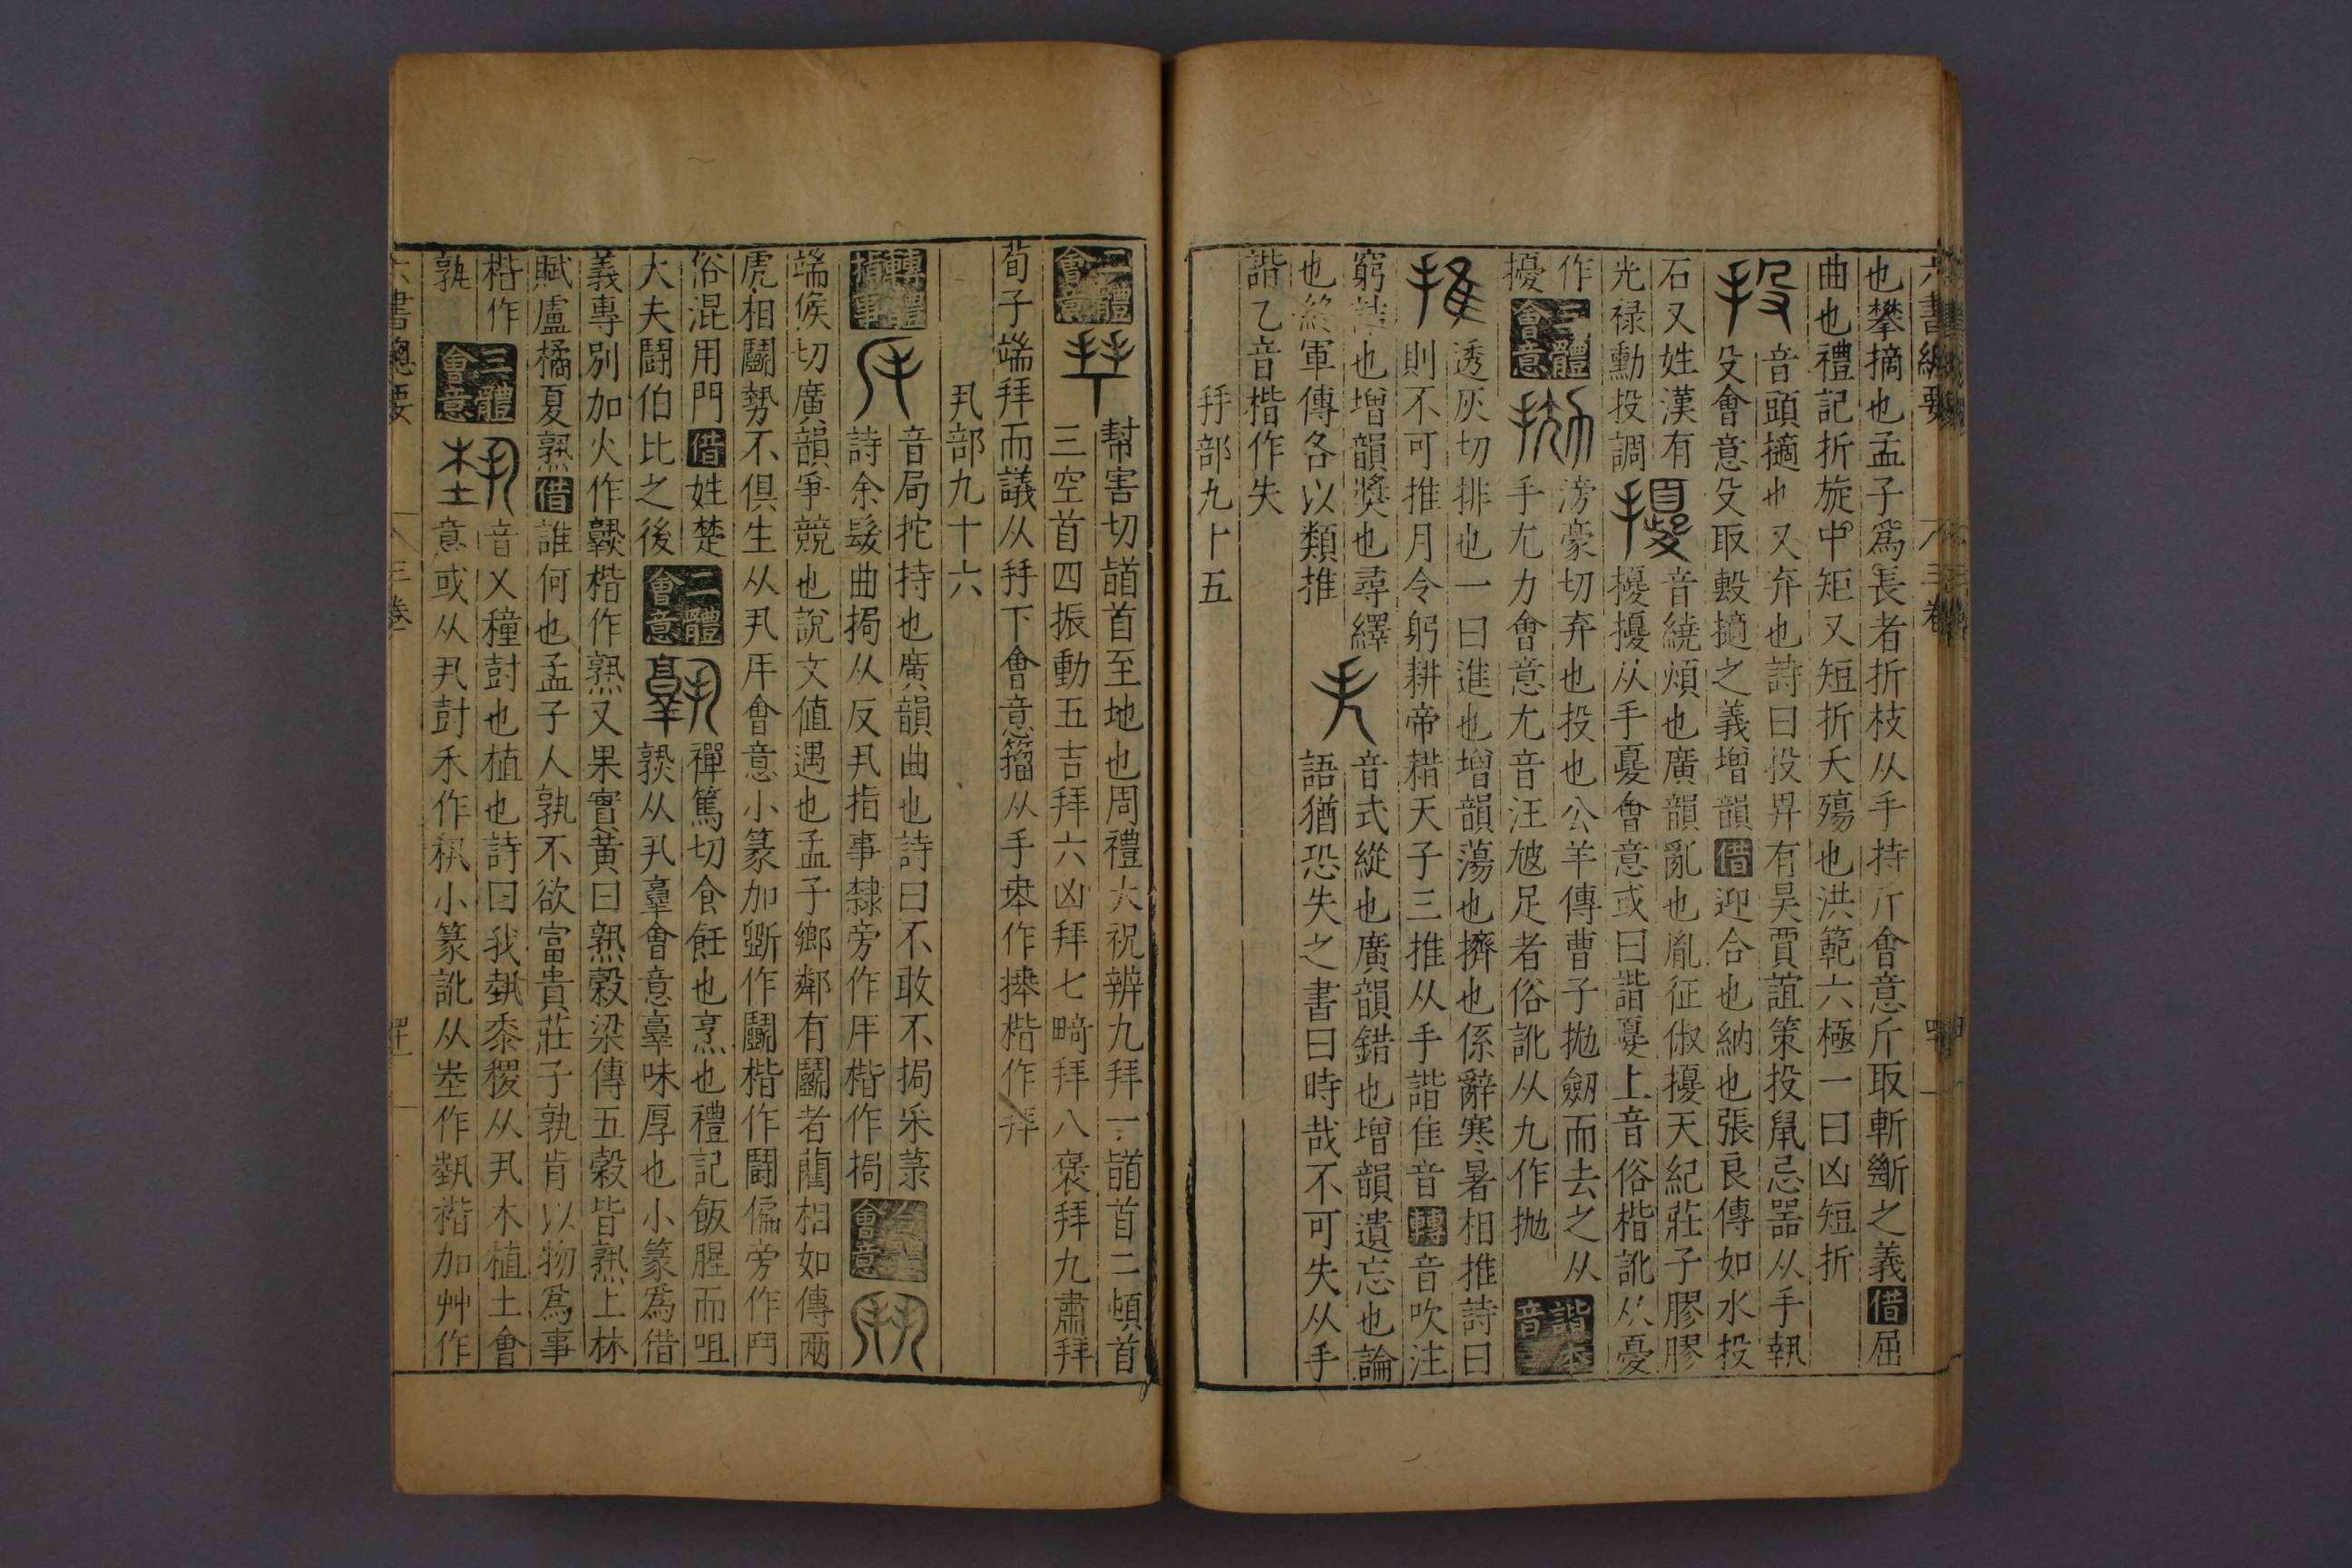 六書總要 三卷
也攀摘也孟子爲長者折枝从手持斤會意斤取斬斷之義借屈
曲也禮記折旋中矩又短折夭殤也洪範六極一曰凶短折
音頭擿也又弃也詩曰投畀有昊賈誼策投鼠忌器从手執
投 殳會意殳取毄擿之義增韻借迎合也納也張良傳如水投
石又姓漢有
光祿勳投調
擾 音繞煩也廣韻亂也胤征俶擾天紀莊子膠膠
擾擾从手憂會意或曰諧憂上音俗楷訛从憂
作擾
三體會意
滂豪切弃也投也公羊傳曹子拋劒而去之从
手尢力會意尢音汪尳足者俗訛从九作抛
諧本音
推 透灰切排也一曰進也增韻蕩也擠也係辭寒暑相推詩曰
則不可推月令躬耕帝耤天子三推从手諧隹音轉音吹注
窮詰也增韻奬也尋繹
也終軍傳各以類推
音式縱也廣韻錯也增韻遺忘也論
語猶恐失之書曰時哉不可失从手
諧乙音楷作失
部九十五
二體會意
幇害切𩒨首至地也周禮大祝辨九拜一𩒨首二頓首
三空首四振動五吉拜六凶拜七畸拜八褒拜九肅拜
荀子端拜而議从𢪙下會意籀从手𠦪作𢷎楷作拜
丮部九十六
轉體指事
音局拕持也廣韻曲也詩曰不敢不挶采菉
詩余髮曲挶从反丮指事隸旁作𠨭楷作挶
二體會意
端候切廣韻爭競也說文値遇也孟子鄉鄰有鬭者藺相如傳兩
虎相鬭勢不俱生从丮𠨭會意小篆加斲作鬭楷作鬪偏旁作鬥
俗混用門借姓楚
大夫鬪伯比之後
二體會意
禪篤切食飪也烹也禮記飯腥而咀
孰从丮𦎫會意𦎫味厚也小篆爲借
義專別加火作𤍨楷作熟又果實黃曰熟穀梁傳五穀皆熟上林
賦盧橘夏熟借誰何也孟子人孰不欲富貴莊子孰肯以物爲事
楷作
孰
三體會意
音乂穜尌也植也詩曰我埶黍稷从丮木植土會
意或从丮尌禾作秇小篆訛从坴作埶楷加艸作
六書總要 三卷